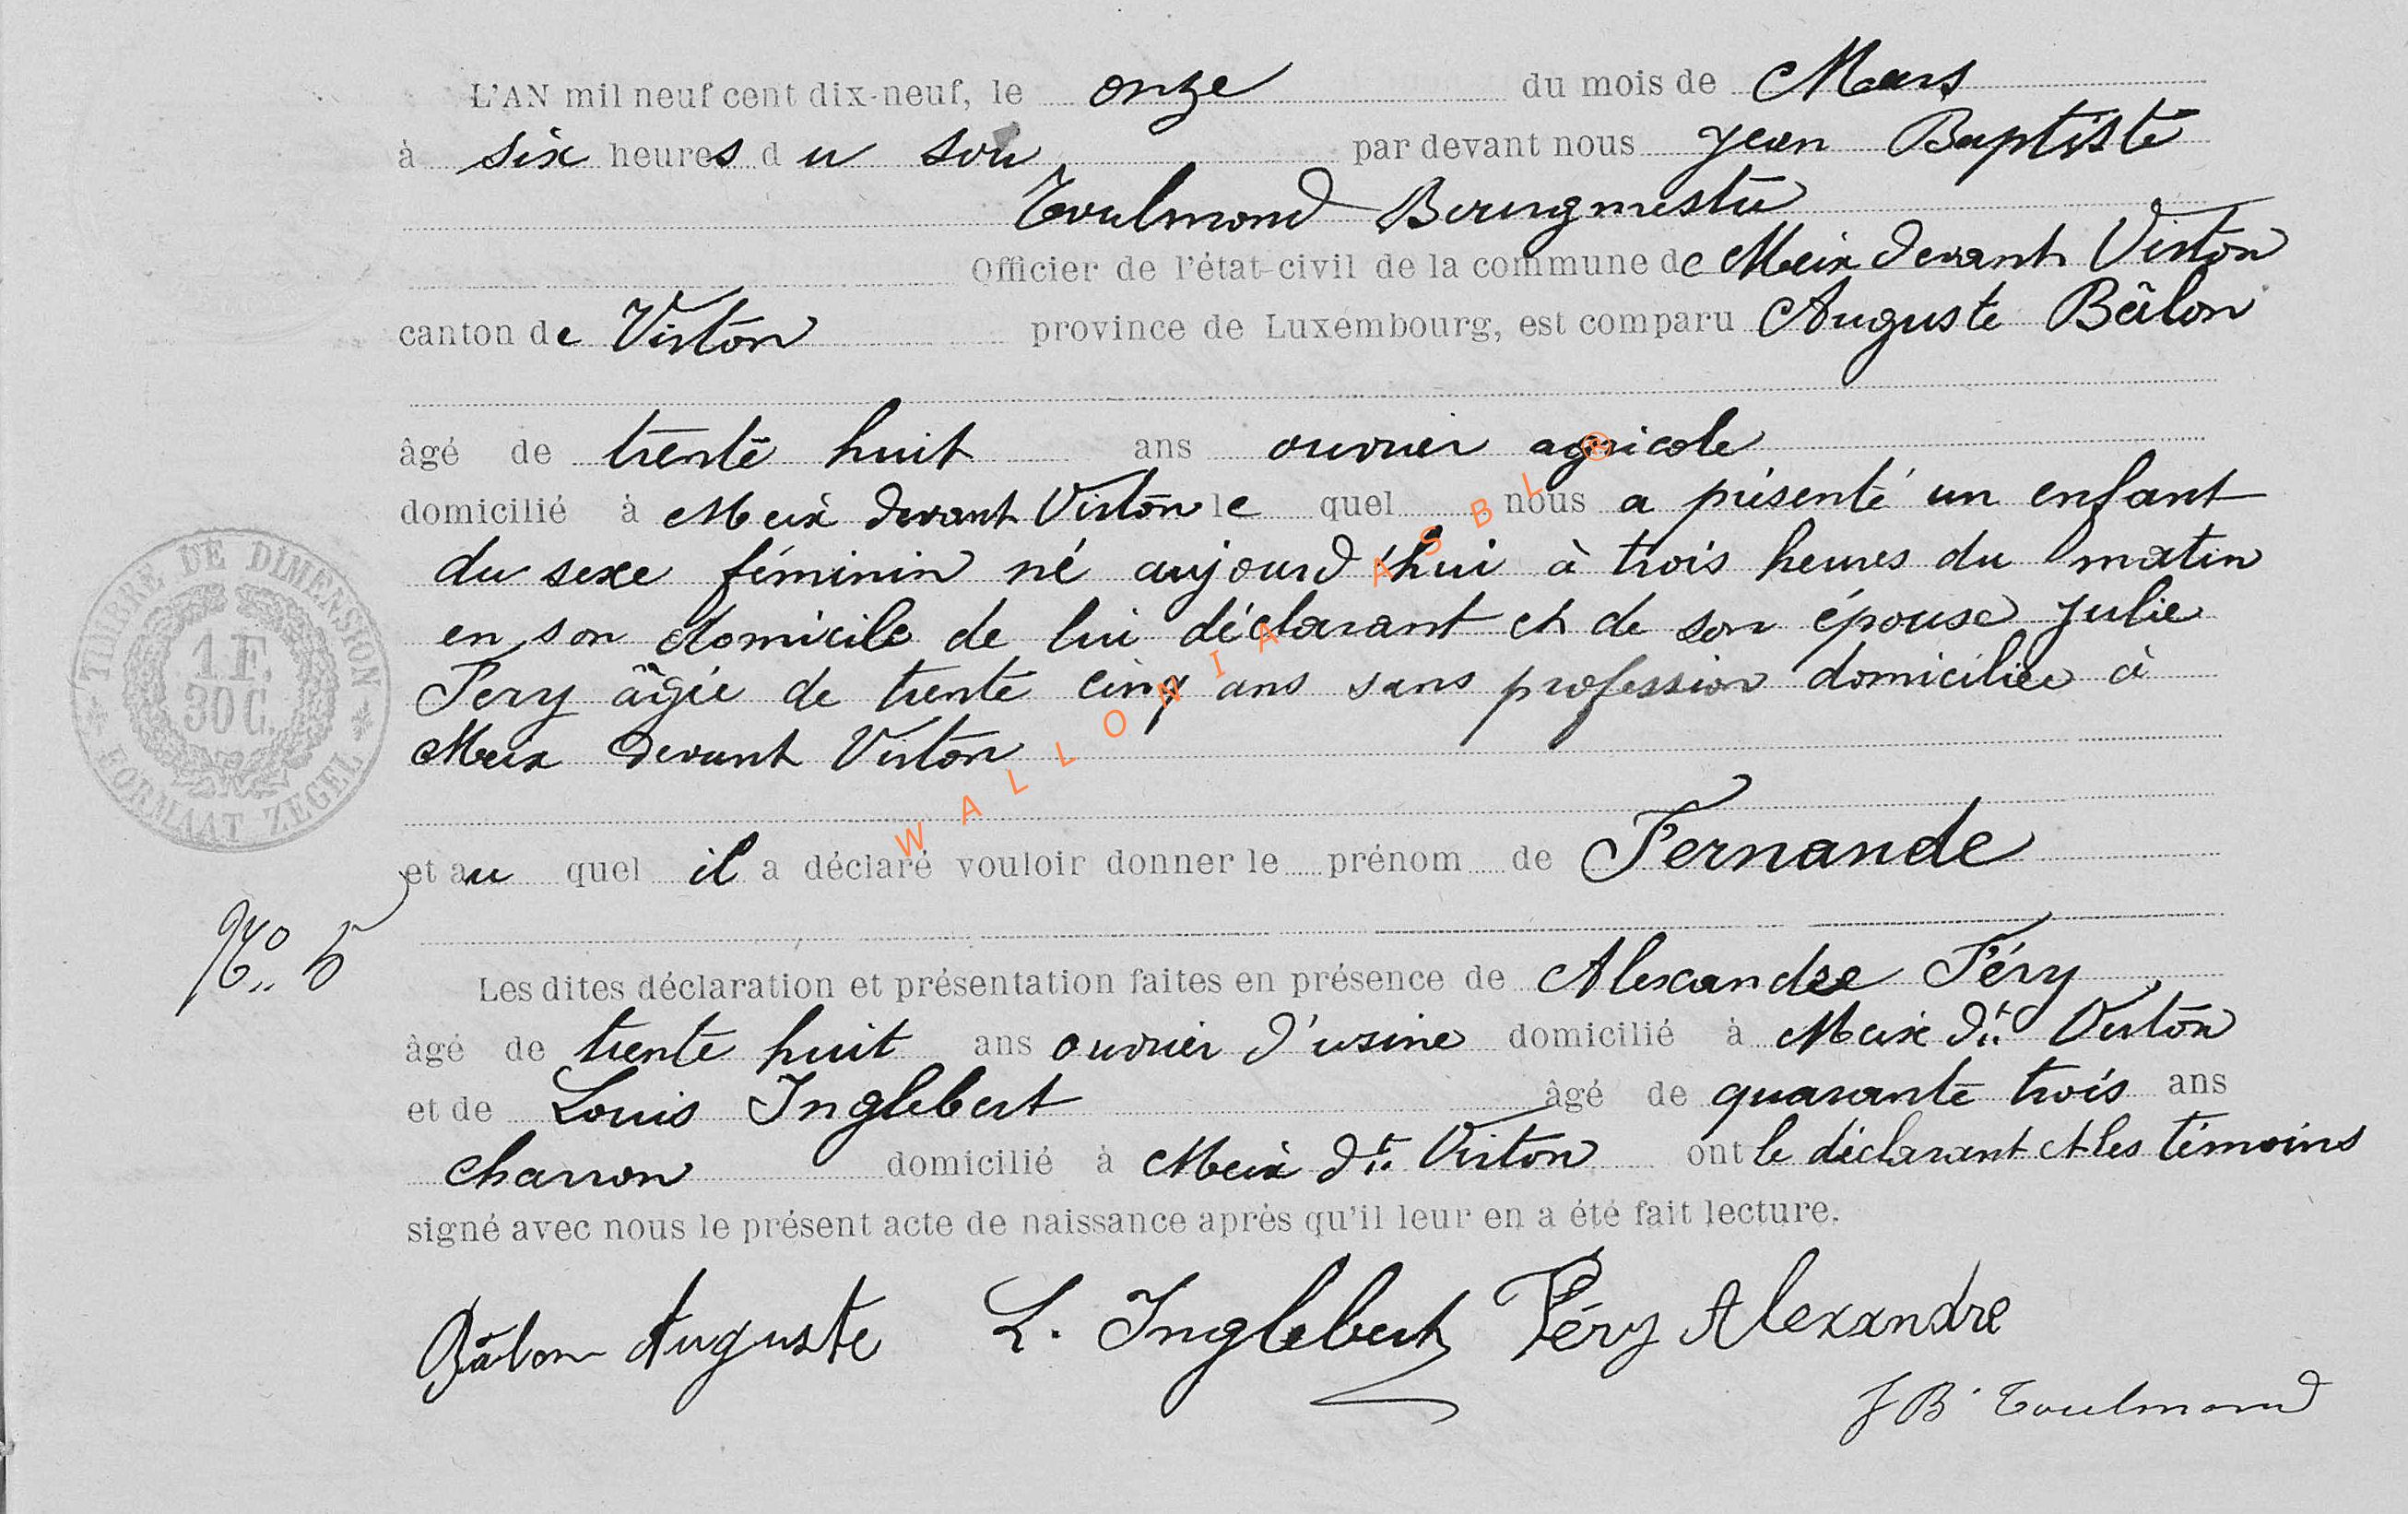 L'AN mil neuf cent dix-neuf, le onze du mois de Mars
à six heures du soir par devant nous Jean Baptiste
Toulmond Bourgmestre
Officier de l'état-civil de la commune de Meix devant Virton
canton de Virton province de Luxembourg, est comparu Auguste Bâlon
âgé de trente huit ans ouvrier agricole
domicilié à Meix devant Virton le quel nous a présenté un enfant
du sexe féminin né aujourd'hui à trois heures du matin
en son domicile de lui déclarant et de son épouse Julie
Fery âgée de trente cinq ans sans profession domiciliée à
Meix devant Virton
et au quel il a déclaré vouloir donner le prénom de Fernande
N° 5
Les dites déclaration et présentation faites en présence de Alexandre Féry
âgé de trente huit ans ouvrier d'usine domicilié à Meix dt Virton
et de Louis Inglebert âgé de quarante trois ans
charron domicilié à Meix dt Virton ont le déclarant et les témoins
signé avec nous le présent acte de naissance après qu'il leur en a été fait lecture.
Bâlon Auguste L. Inglebert Féry Alexandre
JB Toulmond
TIMBRE DE DIMENSION
1 F.
30 C.
FORMAAT ZEGEL
WALLONIA ASBL ®